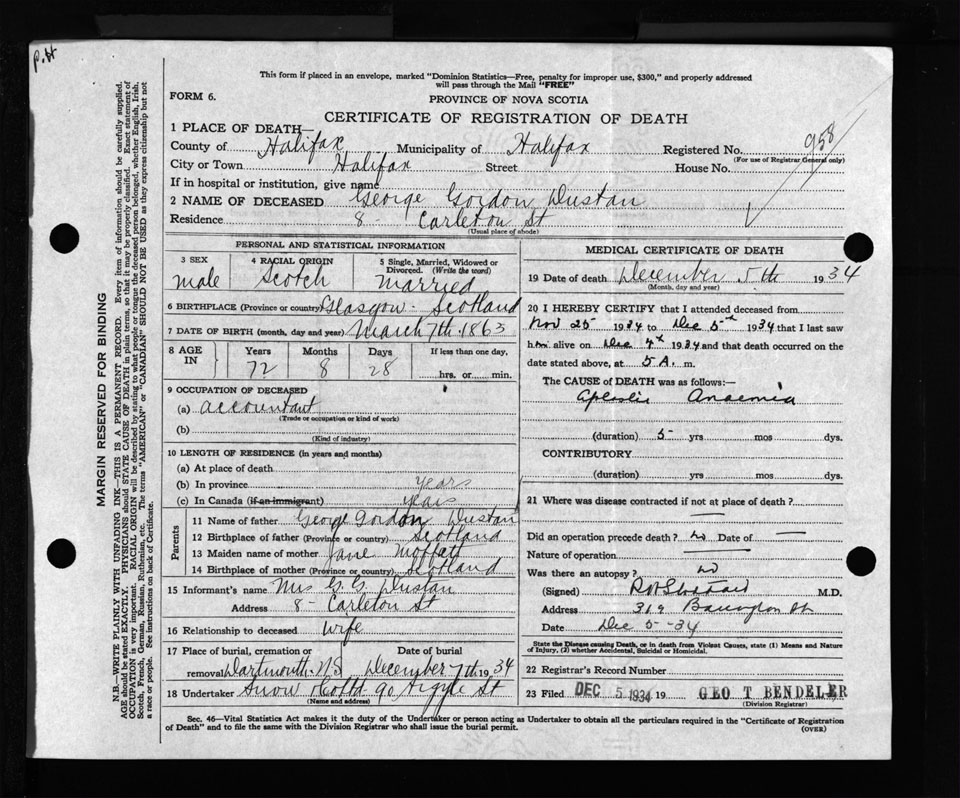 P.H
This form if placed in an envelope, marked "Dominion Statistics—Free, penalty for improper use, $300," and properly addressed
will pass through the Mail "FREE"
FORM 6.
PROVINCE OF NOVA SCOTIA
CERTIFICATE OF REGISTRATION OF DEATH
1 PLACE OF DEATH—
County of Halifax Municipality of Halifax Registered No. 958
(For use of Registrar General only)
City or Town Halifax Street House No.
If in hospital or institution, give name
2 NAME OF DECEASED George Gordon Dustan
Residence 8 Carleton St
(Usual place of abode)
PERSONAL AND STATISTICAL INFORMATION
3 SEX 4 RACIAL ORIGIN 5 Single, Married, Widowed or
Divorced. (Write the word)
male Scotch married
6 BIRTHPLACE (Province or country) Glasgow - Scotland
7 DATE OF BIRTH (month, day and year) March 7th 1863
8 AGE IN Years Months Days If less than one day,
72 8 28 hrs. or min.
9 OCCUPATION OF DECEASED
(a) accountant
(Trade or occupation or kind of work)
(b)
(Kind of industry)
10 LENGTH OF RESIDENCE (in years and months)
(a) At place of death
(b) In province years
(c) In Canada (if an immigrant) years
Parents
11 Name of father George Gordon Dustan
12 Birthplace of father (Province or country) Scotland
13 Maiden name of mother Jane Moffatt
14 Birthplace of mother (Province or country) Scotland
15 Informant's name Mrs G. G. Dustan
Address 8 - Carleton St
16 Relationship to deceased wife
17 Place of burial, cremation or Date of burial
removal Dartmouth, NS December 7th 1934
18 Undertaker Snow & Co Ltd 90 Argyle St
(Name and address)
MEDICAL CERTIFICATE OF DEATH
19 Date of death December 5th 1934
(Month, day and year)
20 I HEREBY CERTIFY that I attended deceased from
Nov 25 1934 to Dec 5th 1934 that I last saw
him alive on Dec 4th 1934 and that death occurred on the
date stated above, at 5 A. m.
The CAUSE of DEATH was as follows:—
Aplastic Anaemia
(duration) 5 yrs mos dys.
CONTRIBUTORY
(duration) yrs mos dys.
21 Where was disease contracted if not at place of death? —
Did an operation precede death? no Date of —
Nature of operation —
Was there an autopsy? no
(Signed) M.D.
Address 319 Barrington St
Date Dec 5 - 34
State the Disease causing Death, or in death from Violent Causes, state (1) Means and Nature
of Injury, (2) whether Accidental, Suicidal or Homicidal.
22 Registrar's Record Number
23 Filed DEC 5 1934 19 GEO T BENDELER
(Division Registrar)
Sec. 46—Vital Statistics Act makes it the duty of the Undertaker or person acting as Undertaker to obtain all the particulars required in the "Certificate of Registration
of Death" and to file the same with the Division Registrar who shall issue the burial permit.
(OVER)
MARGIN RESERVED FOR BINDING
N.B.—WRITE PLAINLY WITH UNFADING INK—THIS IS A PERMANENT RECORD. Every item of information should be carefully supplied.
AGE should be stated EXACTLY. PHYSICIANS should STATE CAUSE OF DEATH in plain terms, so that it may be properly classified. Exact statement of
OCCUPATION is very important. RACIAL ORIGIN will be described by stating to what people or tongue the deceased person belonged, whether English, Irish,
Scotch, French, German, Russian, Ruthenian, etc. The terms "AMERICAN" or "CANADIAN" SHOULD NOT BE USED as they express citizenship but not
a race or people. See instructions on back of Certificate.